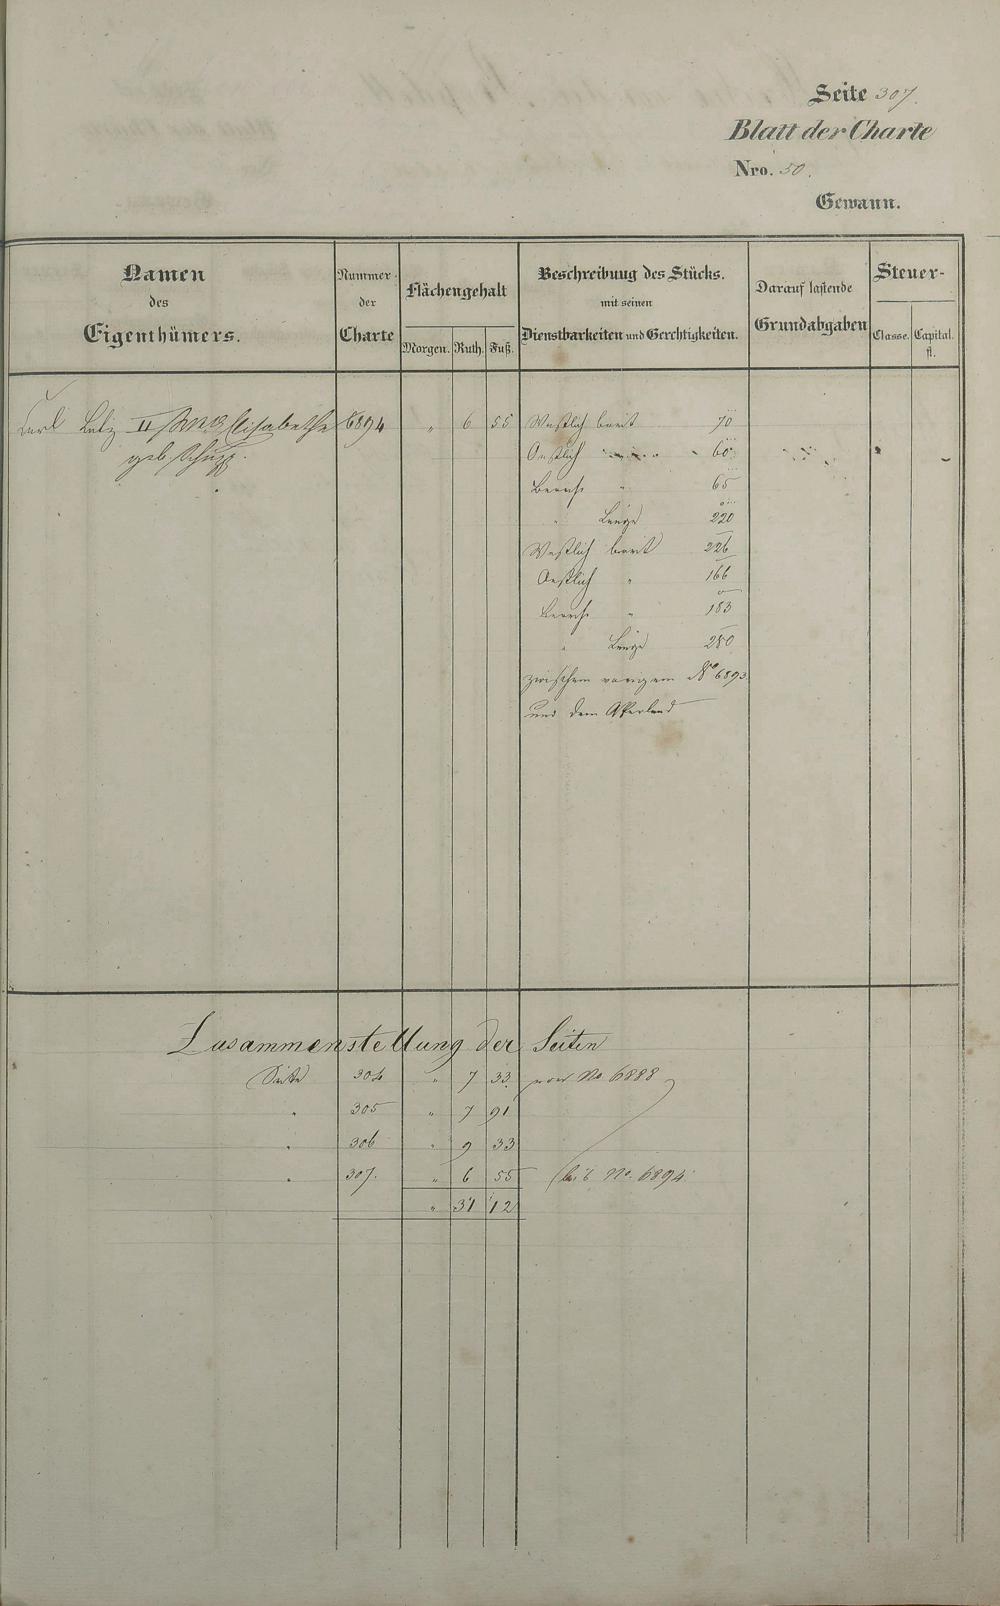 Seite 307.
Blatt der Charte
Nro. 50.
Gewann.
Namen
des
Eigenthümers.
Nummer
der
Charte
Flächengehalt
Morgen. Ruth. Fuß.
Beschreibung des Stücks.
mit seinen
Dienstbarkeiten und Gerechtigkeiten.
Darauf lastende
Grundabgaben
Steuer-
Classe. Capital.
fl.
Carl II Elisabetha 6894 " 6 55 Westlich breit 70
geb. Schupp.
Oestlich " 60
" 65
" Länge 220
Westlich breit 226
Oestlich " 166
" 183
" Länge 280
zwischen vorigem No 6893
und dem Ackerland
Zusammenstellung der Seiten
Seite 304 " 7 33. von No 6888
" 305 " 7 91
" 306 " 9 33
" 307. " 6 55 bis No. 6894.
" 31 12